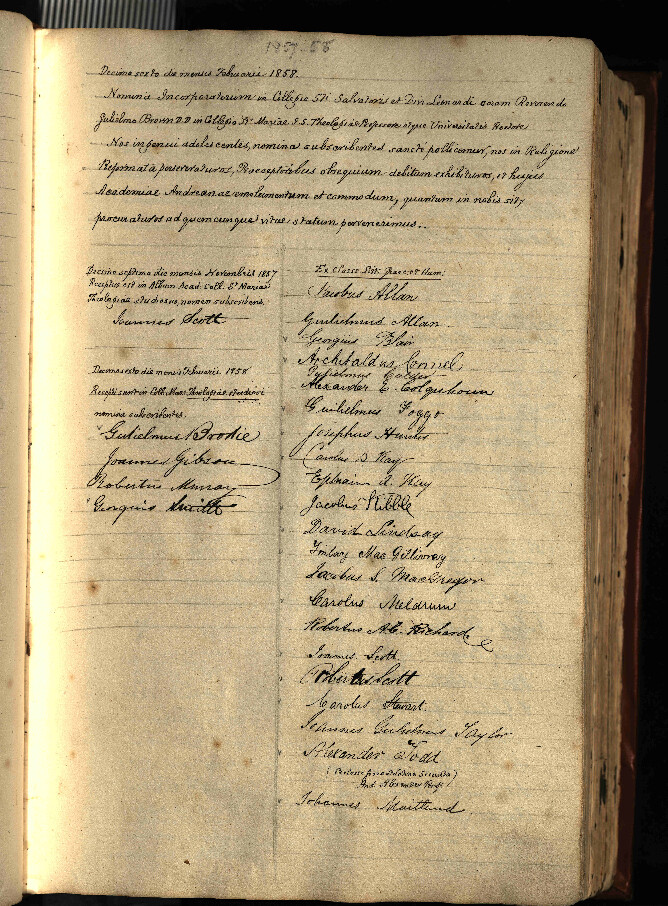 1857-58
Decimo sexto die mensis Februarii 1858.
Nomina Incorporatorum in Collegio Sti Salvatoris et Divi Leonardi coram Reverendo
Gulielmo Brown D.D in Collegio Bae Mariae S.S. Theologiae Professore atque Universitatis Rectore
Nos ingenui adolescentes, nomina subscribentes sancte pollicemur, nos in Religione
Reformatâ perseveraturos, Praeceptoribus obsequium debitum exhibituros, et hujus
Academiae Andreanae emolumentum et commodum, quantum in nobis sit,
procuraturos ad quemcunque vitae statum pervenerimus..
Decimo septimo die mensis Novembris 1857
Receptus est in Album Acad. Coll. Stae Mariae
Theologiae studiosus, nomen subscribens.
Joannes Scott
Decimo sexto die mensis Februarii 1858
Recepti sunt in Coll. Mariae Theologiae studiosi
nomina subscribentes.
Gulielmus Brodie
Joannes Gibson
Robertus Murray
Georgius Smith
Ex Classe Litt. Graec. et Hum.
Jacobus Allan
Gulielmus Allan
Georgius Blair
Archibaldus Connel
Gulielmus
Alexander E. Colquhoun
Gulielmus Foggo
Josephus Hunter
Carolus D Kay
Ephraim A Kay
Jacobus Kibble
David Lindsay
Finlay MacGillivray
Jacobus S. MacGregor
Carolus Meldrum
Robertus Richard
Joannes Scott
Robertus Scott
Carolus Stewart
Joannes Gulielmus Taylor
Alexander Todd
Johannes Maitland